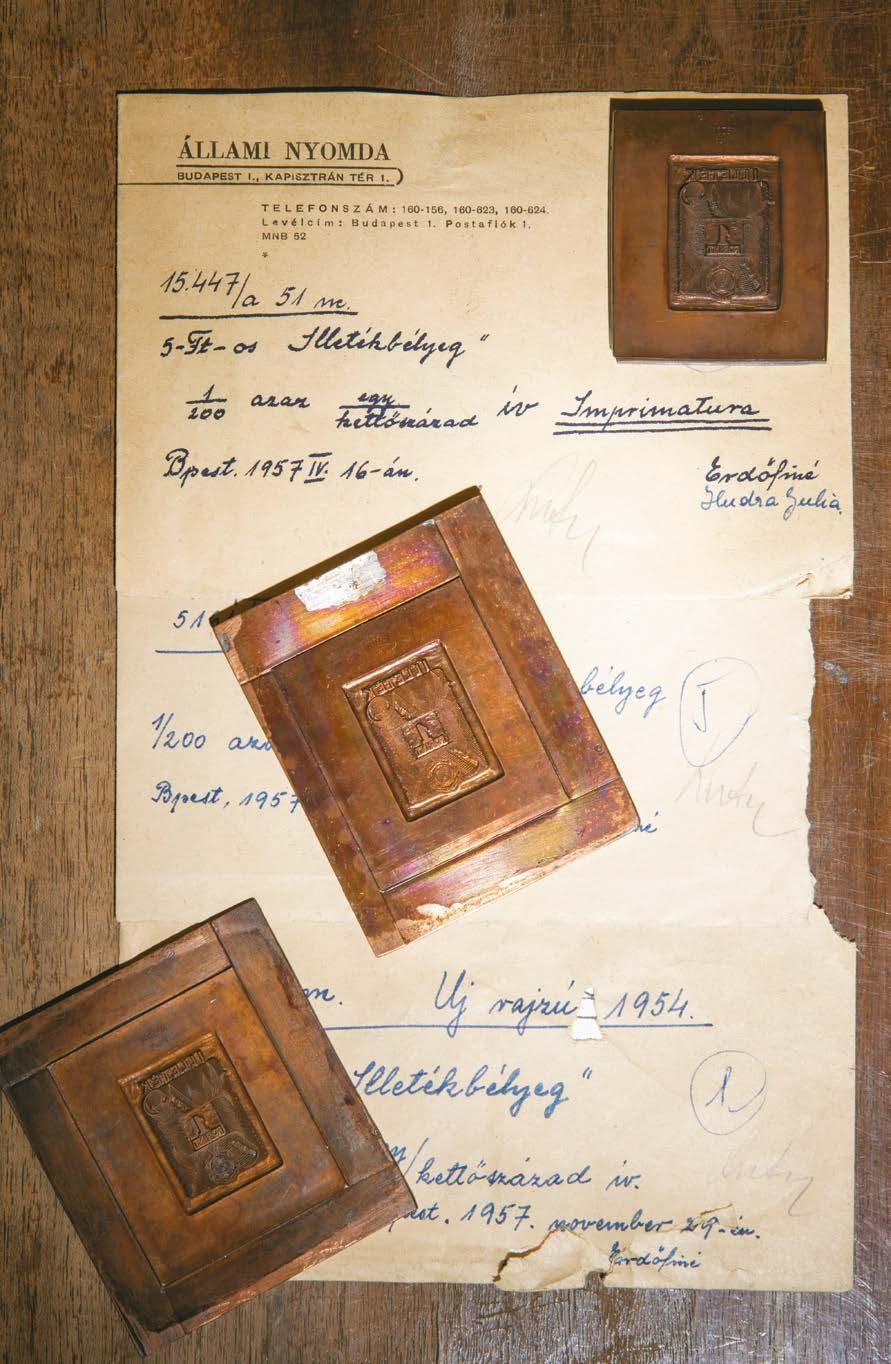 ÁLLAMI NYOMDA
BUDAPEST I., KAPISZTRÁN TÉR 1.
TELEFONSZÁM: 160-156, 160-623, 160-624.
Levélcím: Budapest 1. Postafiók 1.
MNB 52
*
15.447/a 51 m.
5-Ft-os Illetékbélyeg"
1/200 azaz egy/kettőszázad ív Imprimatura
Bpest. 1957 IV. 16-án.
Erdőfiné
Hudra Julia.
51
bélyeg
I
1/200 aza
Bpest, 1957
né
m. Uj rajzú 1954.
Illetékbélyeg"
1
kettőszázad ív.
1957. november 29-én.
Erdőfiné